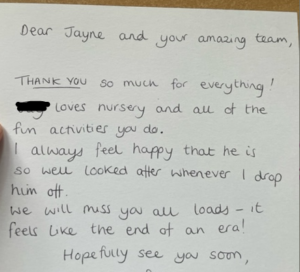 Dear Jayne and your amazing team,
THANK YOU so much for everything!
loves nursery and all of the
fun activities you do.
I always feel happy that he is
so well looked after whenever I drop
him off.
We will miss you all loads - it
feels like the end of an era!
Hopefully see you soon,